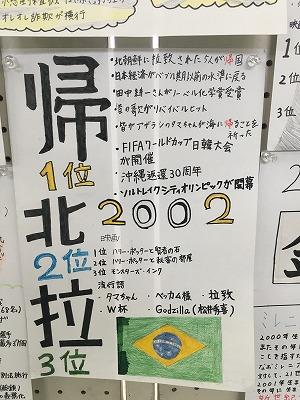 オレオレ詐欺が横行
帰
1位
北
2位
拉
3位
・北朝鮮に拉致された5人が帰国
・日本経済がバブル期以前の水準に戻る
・田中耕一さんがノーベル化学賞受賞
・昔の歌がリバイバルヒット
・皆がアザラシのタマちゃんが海に帰ることを
祈った
・FIFAワールドカップ日韓大会
が開催
・沖縄返還30周年
・ソルトレイクシティオリンピックが開幕
2002
映画
1位 ハリー・ポッターと賢者の石
2位 ハリー・ポッターと秘密の部屋
3位 モンスターズ・インク
流行語
・タマちゃん ・ベッカム様 ・拉致
・W杯 ・Godzilla(松井秀喜)